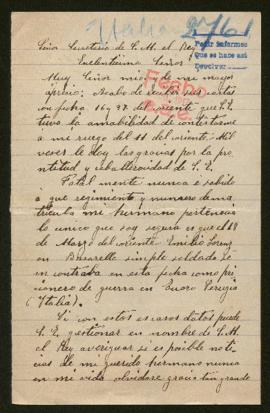 Italia
Pedir informes
Que se hace así
Devolver
Señor Secretario de S. M. el Rey
Excelentísimo Señor:
Muy Señor mio y de mi mayor
aprecio: Acabo de recibir sus cartas
con fecha 16 y 27 del oriente que S. E.
tuvo la amabilidad de contestarme
á mi ruego del 11 del oriente. Mil
veces le doy las gracias por la pron
titud y caballerosidad de S. E.
Fatal mente nunca e sabido
a que regimiento y numero de ma
tricula mi hermano pertenecía
lo unico que soy segura es que el 18
de Marzo del oriente Emilio Loren
simple soldado se
en contraba en esta fecha como pri
cionero de guerra en
(Italia).
Si con estos escasos datos puede
S. E. gestionar en nombre de S. M.
el Rey averiguar si es posible no ti
cias de mi querido hermano nunca
en mi vida olvidare gracia tan grande